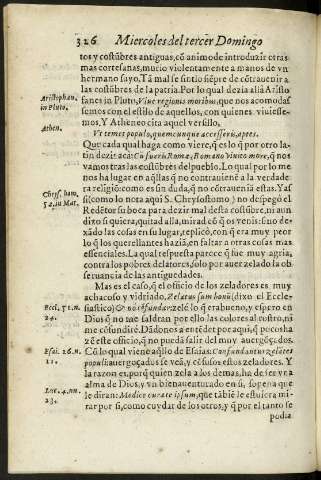 326 Miercoles del tercer Domingo
tos y costũbres antiguas, cõ animo de introduzir otras
mas cortesanas, murio violentamente a manos de vn
hermano suyo. Tã mal se sintio siẽpre de cõtrauenir a
las costũbres de la patria. Por lo qual dezia allà Aristo
Aristophan.
in Pluto.
fanes in Pluto, Viue regionis moribus, que nos acomodas
semos con el estilo de aquellos, con quienes viuiesse-
mos. Y Atheneo cita aquel versillo.
Athen.
Vt temes populo, quemcunque accesseris, aptes.
Que cada qual haga como viere, q̃ es lo q̃ por otro la-
tin dezir acà: Cũ fueris Romæ, Romano viuito more, q̃ nos
vamos tras las costũbres del pueblo. Lo qual por lo me
nos ha lugar en aq̃llas q̃ no contrauienẽ a la verdade-
ra religiõ: como es sin duda, q̃ no cõtrauenia estas. Y asi
si(como lo nota aqui S. Chrysostomo) no despegò el
Chrys. hom.
52. in Mat.
Redẽtor su boca para dezir mal desta costũbre, ni aun
dixo si quiera, quitad allà, mirad cõ q̃ os venis: sino de
xãdo las cosas en su lugar, replicò, con q̃ era muy peor
lo q̃ los querellantes haziã, en faltar a otras cosas mas
essenciales. La qual respuesta parece q̃ fue muy agria,
contra los pobres delatores, solo por auer zelado la ob
seruancia de las antiguedades.
Mas es el caso, q̃ el officio de los zeladores es muy
achacoso y vidriado. Zelatus sum bonũ (dixo el Eccle-
siastico) & nõ cõfundar: zele lo q̃ era bueno, y espero en
Eccl. 51. n.
24.
Dios q̃ no me saldran por ello las colores al rostro, ni
me cõfundirè. Dãdonos a entẽder por aqui, q̃ poco ha
zẽ este officio, q̃ no puedã salir del muy auergõçados.
Cũ lo qual viene aq̃llo de Esaias: Confundantur zelãtes
Esai. 26. n.
11.
populi: auergoçados se veã, y cõfusos estos zeladores. Y
la razon es, porq̃ quien zela a los demas, ha de ser vna
alma de Dios, y vn bienauenturado en si, so pena que
le diran: Medice cura te ipsum, que tãbiẽ le estuuiera mi
Luc. 4. nu.
23.
rar por si, como cuydar de los otros, y q̃ por el tanto se
podia